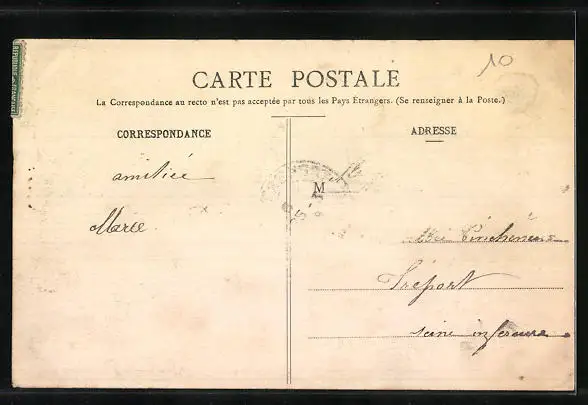 RÉPUBLIQUE FRANÇAISE
10
CARTE POSTALE
La Correspondance au recto n'est pas acceptée par tous les Pays Etrangers. (Se renseigner à la Poste.)
CORRESPONDANCE
ADRESSE
amitiée
M
Marie
Tréport
seine inferieure